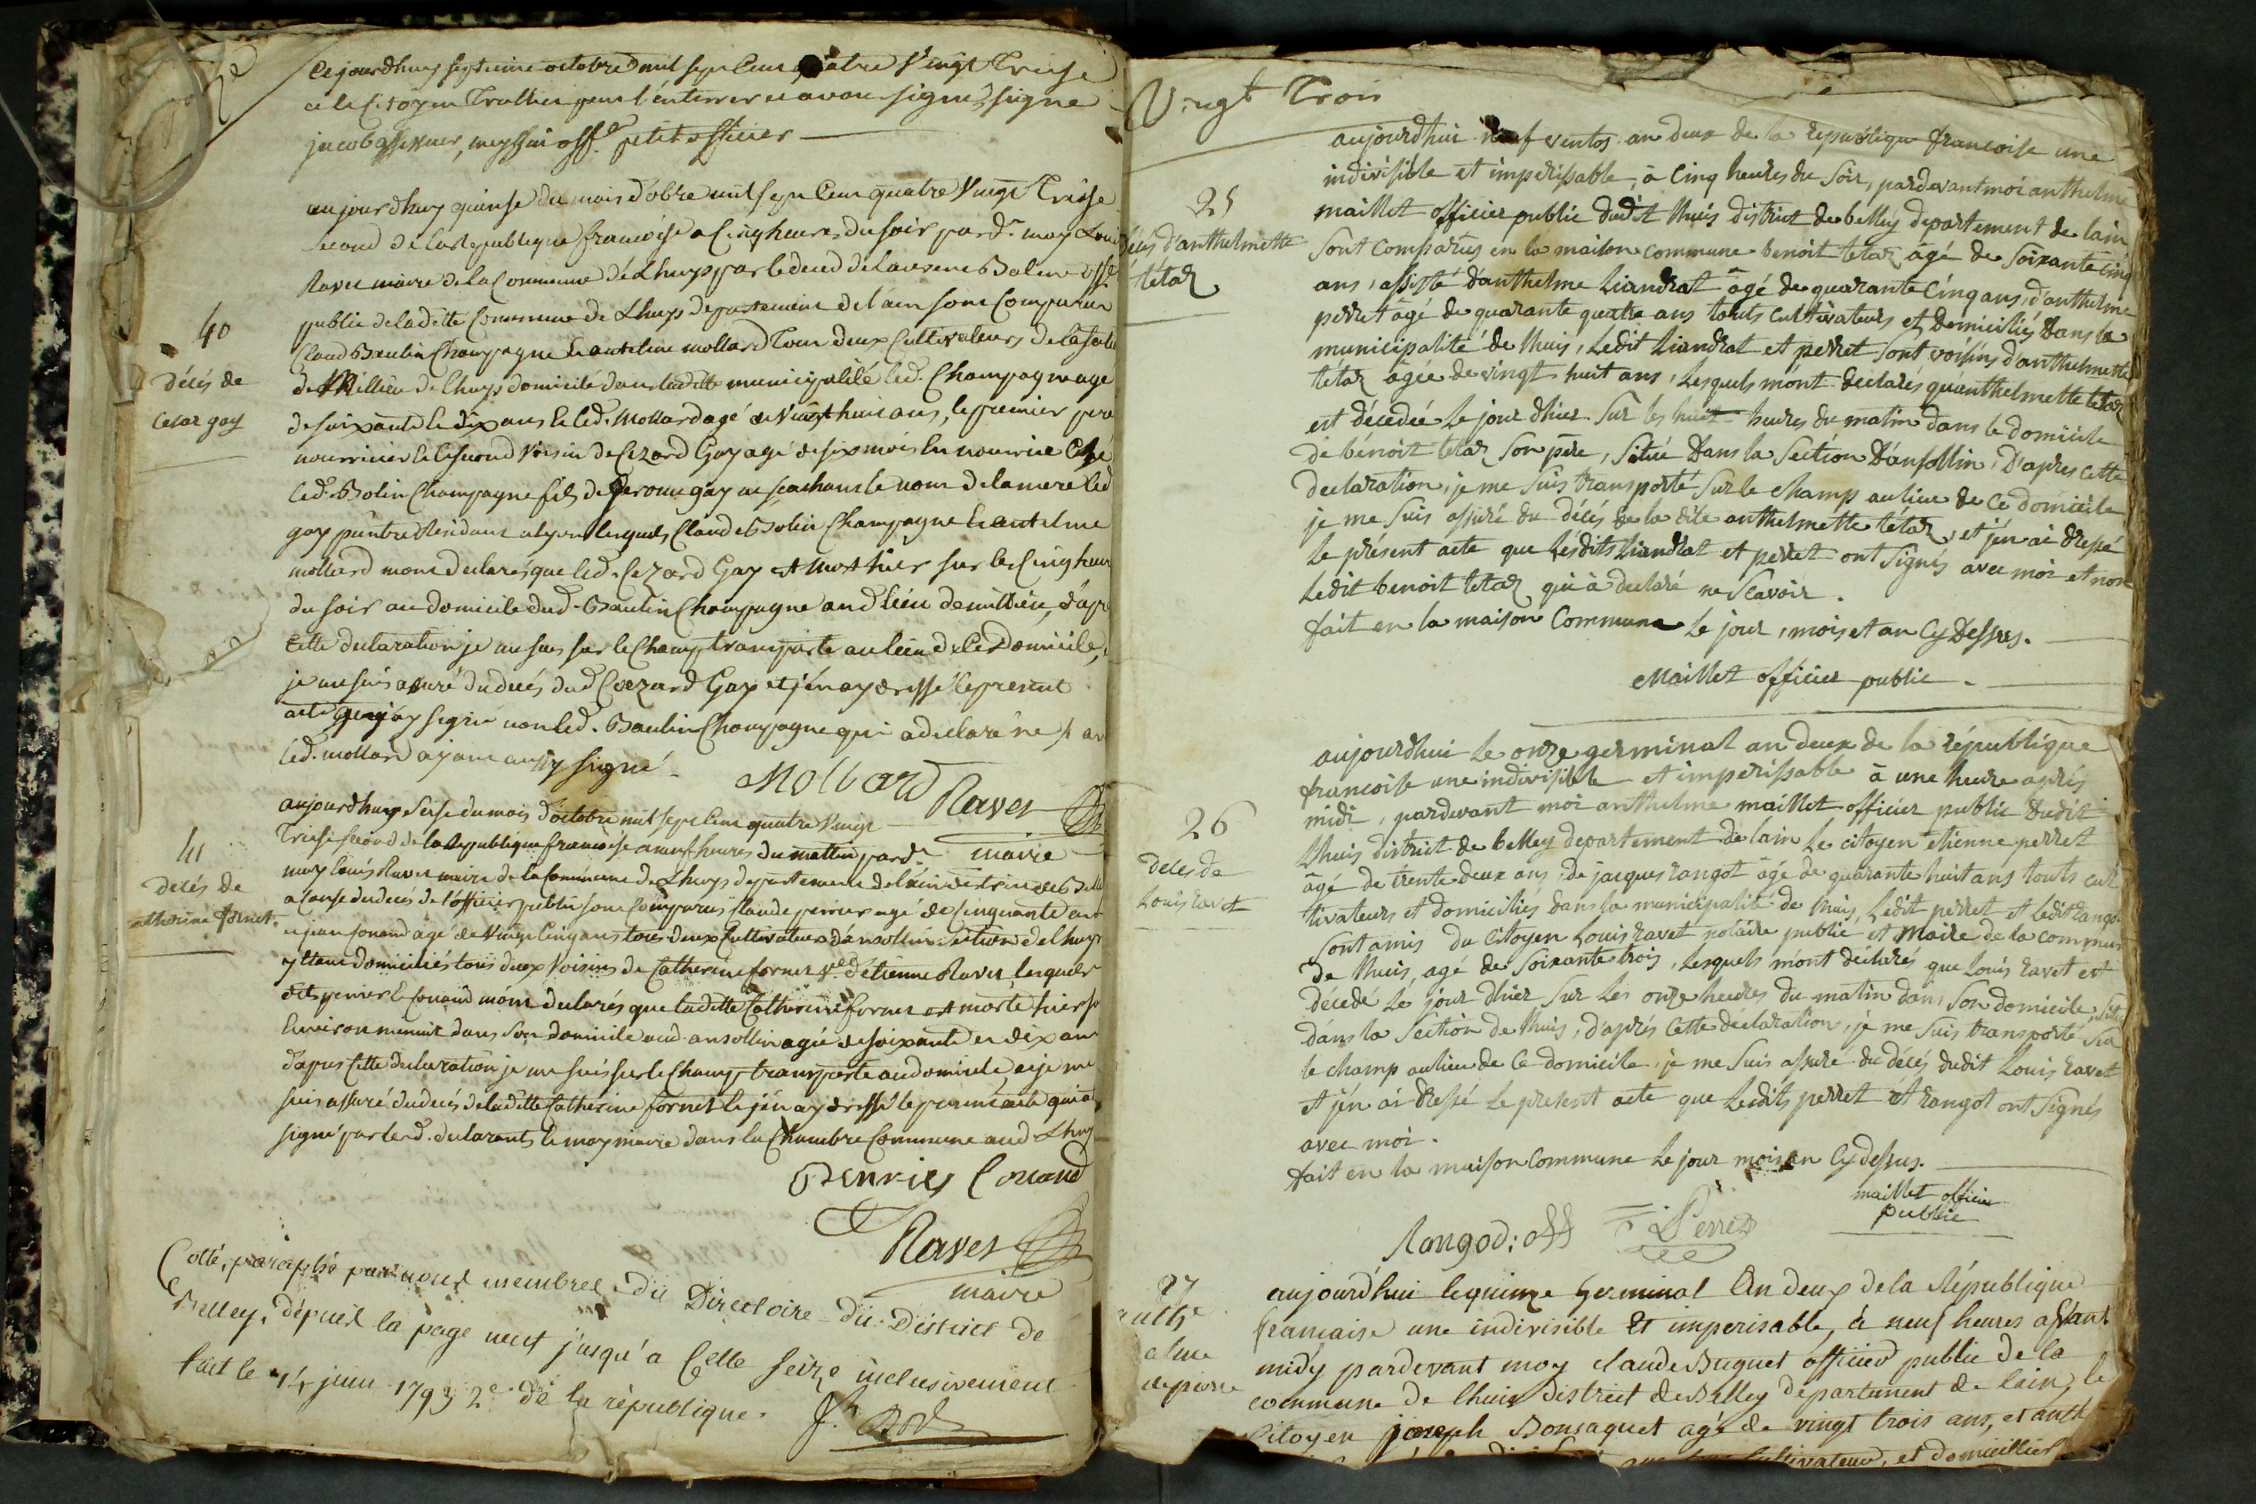 Cejourdhuy septieme octobre mil sept Cent quatre Vingt Treise
et le Citoyen Trollier pour l'enterrer et avons signé, signe
jacob assesseur, offr petit officier
aujourdhuy quinse du mois d'obre mil sept Cent quatre Vingt Treise
second de la Republique francoise a Cinq heures du soir pard.t moy Louis
Ravet maire de la Commune de Lhuys par le deced de Laurent Balme offi
public de ladette Commune de Lhuys departement de l'ain sont Comparus
Claud Baulin Champagne et antelme mollard Tous deux Cultivateurs de la
de Millieu de Lhuys domicilié dans ladette municipalité led. Champagne age
de soixante et dix ans et led. Mollard agé de Vingt huit ans, le premier pere
nourricier et le second Voisin de Cezard Gay agé de six mois en nourrice Ché
led. Bolin Champagne fils de Jerome gay ne sachant le nom de la mere led
gay peintre Residant a lyon lesquels Claude Bolin Champagne et antelme
mollard mont declarés que led. Cezard Gay est mort hier sur les Cinq heures
du soir au domicile dud. Baulin Champagne aud lieu de millieu, d'apr
Cette declaration je me suis sur le Champ transporté au lieu de Ce Domicile,
je me suis assuré du decés dud Cezard Gay et j'en ay dressé le present
acte que j'ay signé non led. Baulin Champagne qui a declaré ne
led. mollard ayant aussy signé
40
Décés de
Cesar gay
Mollard Ravet
maire
aujourdhuy seise du mois d'octobre mil sept Cent quatre Vingt
Treise second de la Republique francoise a neuf heures du mattin pard.t
moy Louis Ravet maire de la Commune de Lhuys departement de l'ain district de Bell
a Cause du deces de l'officier public sont Comparus Claude perrier agé de Cinquante ans
et jean Conand agé de Vingt Cinq ans tous deux Cultivateurs d'ansollin section de Lhuys
y étant domiciliés tous deux Voisins de Catherine fornet d'etienne Ravet, lesquels
dits perrier et Conand mont declarés que ladette Catherine fornet est morte hier
Environ minuit dans son domicile aud ansollin agée de soixante et dix ans
d'apres Cette declaration je me suis sur le Champ transporté audomicile et je me
suis assuré du decés de ladette Catherine fornet et j'en ay dressé le present acte qui a
signé par lesd. declarants et moy maire dans la Chambre Commune aud Lhuys
41
decés de
catherine fornet
Perrier Conand
Ravet
maire
Cotté, paraphé par nous membres du Directoire du District de
Belley, depuis la page neuf jusqu'a Celle seize inclusivement
fait le 14 juin 1793 2e de la république.
Vingt Trois
aujourdhui neuf ventos an deux de la republique francoise une
indivisible et imperissable, à Cinq heures du Soir, pardevant moi anthelme
maillet officier public dudit Lhuis district de belley departement de lain
Sont comparus en la maison commune benoit tétaz âgé de Soixante cinq
ans, assisté danthelme Liandrat âgé de quarante Cinq ans, danthelme
perret âgé de quarante quatre ans touts cultivateurs et Domiciliés Dans la
municipalité de Lhuis, Ledit Liandrat et perret Sont voisins danthelmette
tétaz agée de vingt huit ans, Lesquels m'ont declarés qu'anthelmette tétaz
est décedée Le jour d'hier Sur les huit heures du matin dans le domicile
de bénoit tétaz Son père, Situé Dans la Section D'ansollin, D'apres cette
declaration, je me suis transporté Sur le champ au lieu de Ce domicile
je me suis assuré du décés de la dite anthelmétte tétaz, et j'en ai dressé
Le présent acte que Lesdits Liandrat et perret ont Signés avec moi et non
Ledit benoit tétaz qui à declaré ne Scavoir.
fait en la maison Commune Le jour, mois et an Cy Dessus.
Maillet officier public
25
décés d'anthelmette
tétaz
aujourdhui Le onze germinal an deux de la république
francoise une indivisible et imperissable à une heure aprés
midi, pardevant moi anthelme maillet officier public Dudit
Lhuis district de belley departement de lain Le citoyen etienne perret
âgé de trente deux ans, de jacques rangot âgé de quarante huit ans touts cul
tivateurs et domiciliés dans la municipalité de Lhuis, Ledit perret et Ledit rangot
Sont amis du Citoyen Louis ravet notaire public et maire de la commune
de Lhuis, agé de Soixante trois, Lesquels m'ont déclarés que Louis ravet est
décedé Le jour d'hier Sur Les onze heures du matin dans Son domicile, Situé
dans la Section de Lhuis, d'aprés Cette déclaration, je me suis transporté Sur
le champ au lieu de Ce domicile, je me Suis assuré du décés dudit Louis ravet
et j'en ai dressé Le present acte que Lesdits perret et rangot ont Signés
avec moi.
fait en la maison Commune Le jour mois an Cy dessus.
26
deces de
Louis ravet
Rangod: off E Perret
maillet officier
public
27
aujourd'hui lequinze Germinal An deux de la République
francaise une indivisible Et imperisable, à neuf heures avant
midy pardevant moy claude Buquet officier public de la
commune de lhuis district de Belley département de lain, le
Citoyen joseph Bonsaquet agé de vingt trois ans, et anth
Cultivateurs, et domicillier